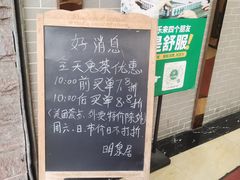 好消息
全天免茶优惠
10:00前买单7.8折
10:00后买单8.8折
(凉菜点心、外卖特价除外)
周六、日、节假日不打折
明泉居
乐来四个朋友
是舒服!